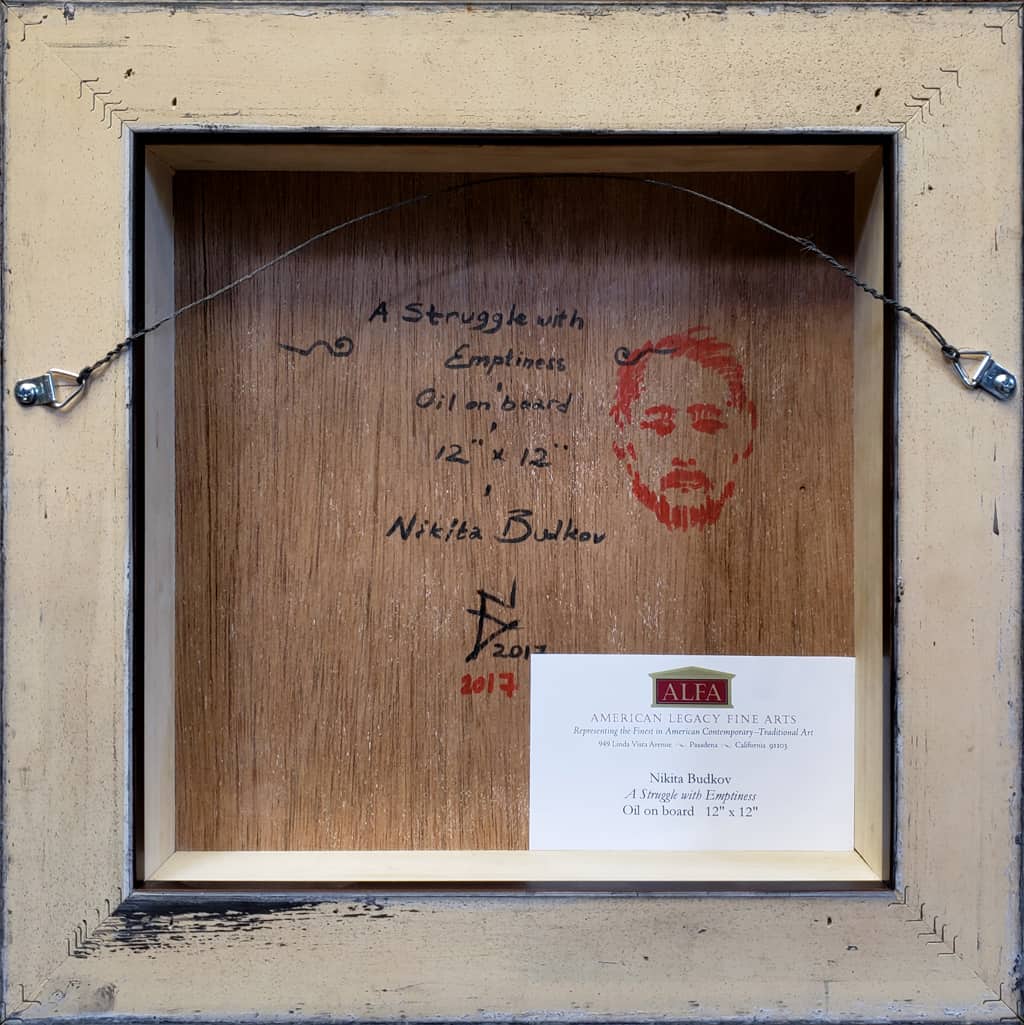 A Struggle with
Emptiness
Oil on board
12" x 12"
Nikita Budkov
2017
2017
ALFA
AMERICAN LEGACY FINE ARTS
Representing the Finest in American Contemporary–Traditional Art
949 Linda Vista Avenue ~ Pasadena ~ California 91103
Nikita Budkov
A Struggle with Emptiness
Oil on board 12" x 12"